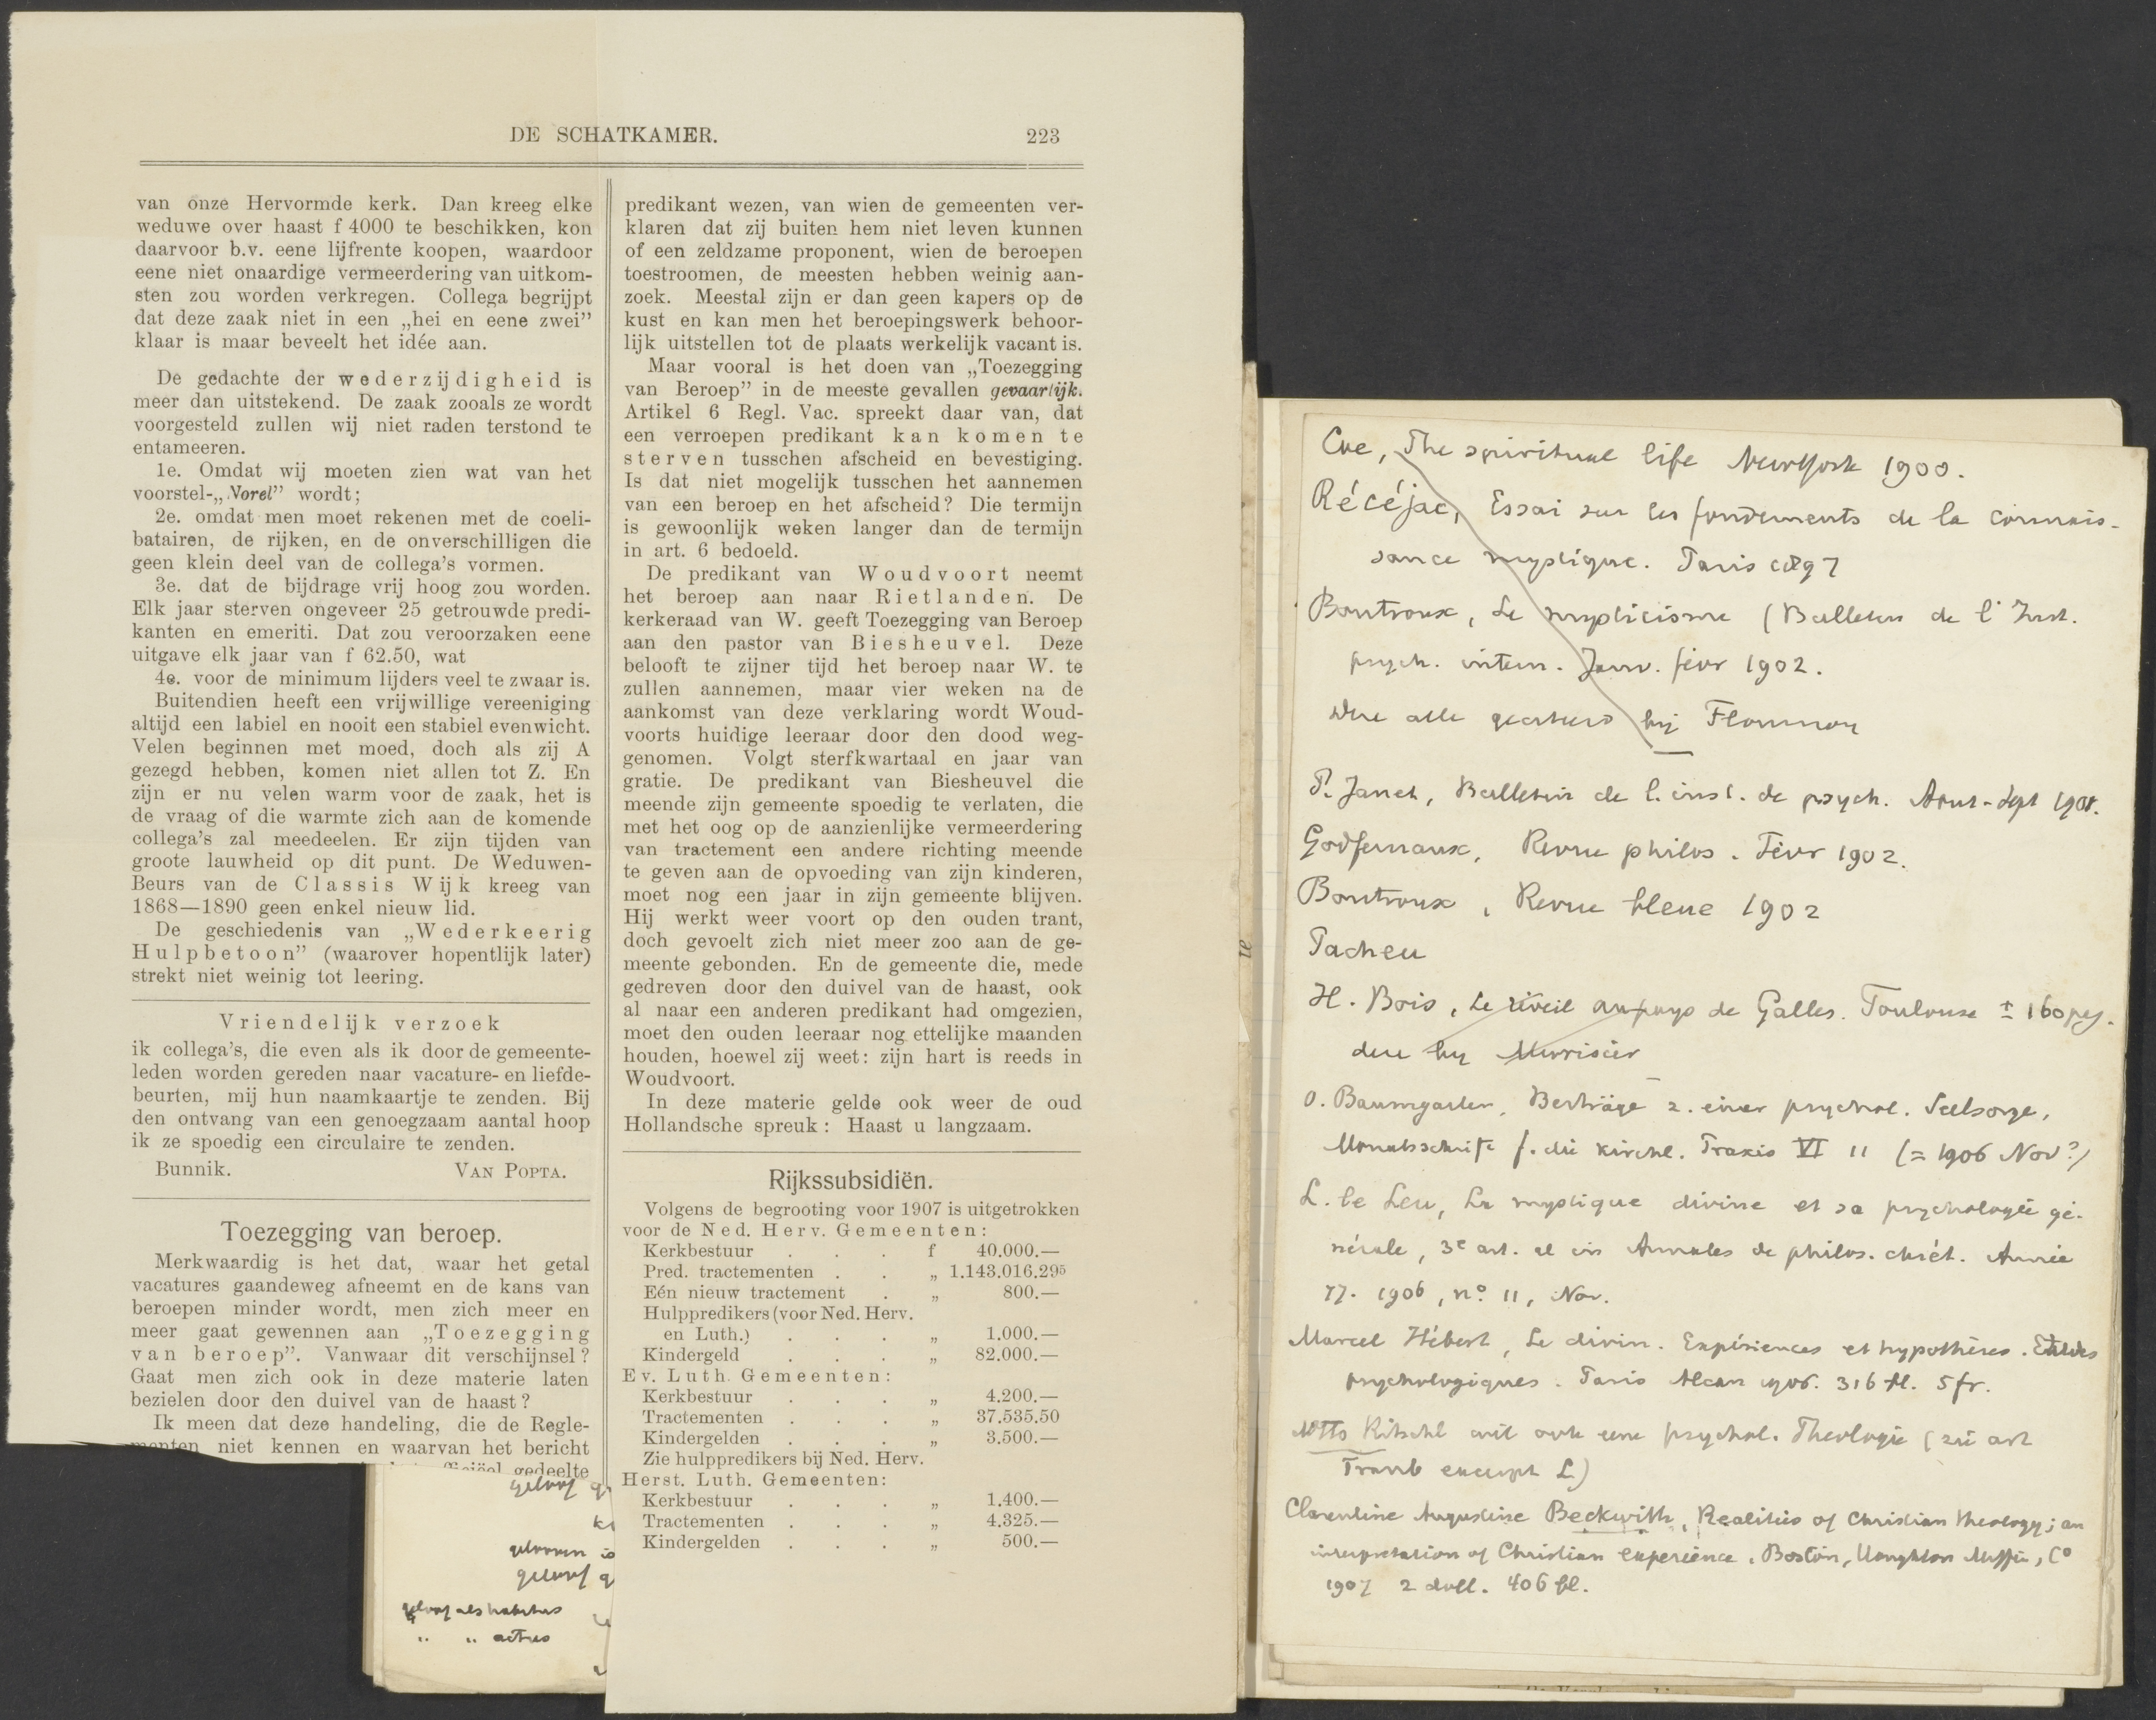 DE SCHATKAMER. 223
van onze Hervormde kerk. Dan kreeg elke
weduwe over haast f 4000 te beschikken, kon
daarvoor b.v. eene lijfrente koopen, waardoor
eene niet onaardige vermeerdering van uitkom-
sten zou worden verkregen. Collega begrijpt
dat deze zaak niet in een „hei en eene zwei”
klaar is maar beveelt het idée aan.
De gedachte der wederzijdigheid is
meer dan uitstekend. De zaak zooals ze wordt
voorgesteld zullen wij niet raden terstond te
entameeren.
1e. Omdat wij moeten zien wat van het
voorstel-„Vorel” wordt;
2e. omdat men moet rekenen met de coeli-
batairen, de rijken, en de onverschilligen die
geen klein deel van de collega's vormen.
3e. dat de bijdrage vrij hoog zou worden.
Elk jaar sterven ongeveer 25 getrouwde predi-
kanten en emeriti. Dat zou veroorzaken eene
uitgave elk jaar van f 62.50, wat
4e. voor de minimum lijders veel te zwaar is.
Buitendien heeft een vrijwillige vereeniging
altijd een labiel en nooit een stabiel evenwicht.
Velen beginnen met moed, doch als zij A
gezegd hebben, komen niet allen tot Z. En
zijn er nu velen warm voor de zaak, het is
de vraag of die warmte zich aan de komende
collega's zal meedeelen. Er zijn tijden van
groote lauwheid op dit punt. De Weduwen-
Beurs van de Classis Wijk kreeg van
1868—1890 geen enkel nieuw lid.
De geschiedenis van „Wederkeerig
Hulpbetoon” (waarover hopentlijk later)
strekt niet weinig tot leering.
Vriendelijk verzoek
ik collega's, die even als ik door de gemeente-
leden worden gereden naar vacature- en liefde-
beurten, mij hun naamkaartje te zenden. Bij
den ontvang van een genoegzaam aantal hoop
ik ze spoedig een circulaire te zenden.
Bunnik. VAN POPTA.
Toezegging van beroep.
Merkwaardig is het dat, waar het getal
vacatures gaandeweg afneemt en de kans van
beroepen minder wordt, men zich meer en
meer gaat gewennen aan „Toezegging
van beroep”. Vanwaar dit verschijnsel?
Gaat men zich ook in deze materie laten
bezielen door den duivel van de haast?
Ik meen dat deze handeling, die de Regle-
menten niet kennen en waarvan het bericht
gedeelte
predikant wezen, van wien de gemeenten ver-
klaren dat zij buiten hem niet leven kunnen
of een zeldzame proponent, wien de beroepen
toestroomen, de meesten hebben weinig aan-
zoek. Meestal zijn er dan geen kapers op de
kust en kan men het beroepingswerk behoor-
lijk uitstellen tot de plaats werkelijk vacant is.
Maar vooral is het doen van „Toezegging
van Beroep” in de meeste gevallen gevaarlijk.
Artikel 6 Regl. Vac. spreekt daar van, dat
een verroepen predikant kan komen te
sterven tusschen afscheid en bevestiging.
Is dat niet mogelijk tusschen het aannemen
van een beroep en het afscheid? Die termijn
is gewoonlijk weken langer dan de termijn
in art. 6 bedoeld.
De predikant van Woudvoort neemt
het beroep aan naar Rietlanden. De
kerkeraad van W. geeft Toezegging van Beroep
aan den pastor van Biesheuvel. Deze
belooft te zijner tijd het beroep naar W. te
zullen aannemen, maar vier weken na de
aankomst van deze verklaring wordt Woud-
voorts huidige leeraar door den dood weg-
genomen. Volgt sterfkwartaal en jaar van
gratie. De predikant van Biesheuvel die
meende zijn gemeente spoedig te verlaten, die
met het oog op de aanzienlijke vermeerdering
van tractement een andere richting meende
te geven aan de opvoeding van zijn kinderen,
moet nog een jaar in zijn gemeente blijven.
Hij werkt weer voort op den ouden trant,
doch gevoelt zich niet meer zoo aan de ge-
meente gebonden. En de gemeente die, mede
gedreven door den duivel van de haast, ook
al naar een anderen predikant had omgezien,
moet den ouden leeraar nog ettelijke maanden
houden, hoewel zij weet: zijn hart is reeds in
Woudvoort.
In deze materie gelde ook weer de oud
Hollandsche spreuk: Haast u langzaam.
Rijkssubsidiën.
Volgens de begrooting voor 1907 is uitgetrokken
voor de Ned. Herv. Gemeenten:
Kerkbestuur . . . f 40.000.—
Pred. tractementen . . „ 1.143.016.295
Eén nieuw tractement . „ 800.—
Hulppredikers (voor Ned. Herv.
en Luth.) . . . „ 1.000.—
Kindergeld . . . „ 82.000.—
Ev. Luth. Gemeenten:
Kerkbestuur . . . „ 4.200.—
Tractementen . . . „ 37.535.50
Kindergelden . . . „ 3.500.—
Zie hulppredikers bij Ned. Herv.
Herst. Luth. Gemeenten:
Kerkbestuur . . . „ 1.400.—
Tractementen . . . „ 4.325.—
Kindergelden . . . „ 500.—
geloof
geloof
geloof als habitus
„ „ actus
Coe, The spiritual life New York 1900.
Récéjac, Essai sur les fondements de la connais-
sance mystique. Paris 1897
Boutroux, Le mysticisme (Bulletin de l'Inst.
psych. intern. Janv. févr 1902.
alle geciteerd bij Flournoy
P. Janet, Bulletin de l. inst. de psych. Aout-Sept 1901.
Godfernaux, Revue philos. Févr 1902.
Boutroux, Revue bleue 1902
Pacheu
H. Bois, Le réveil au pays de Galles. Toulouse ± 160 pag.
O. Baumgarten, Beiträge z. einer psychol. Seelsorge,
Monatsschrift f. die kirchl. Praxis VI 11 (= 1906 Nov?)
L. le Leu, La mystique divine et sa psychologie gé-
nérale, 3e art. al in Annales de philos. chrét. Année
77. 1906, no. 11, Nov.
Marcel Hébert, Le divin. Expériences et hypothèses. Etudes
psychologiques. Paris Alcan 1906. 316 bl. 5 fr.
Otto Ritschl wil ook eene psychol. Theologie (zie art
Traub L)
Clarentine Augustine Beckwith, Realities of Christian theology; an
interpretation of Christian experience. Boston, Houghton Mifflin, Co
1907 2 doll. 406 bl.